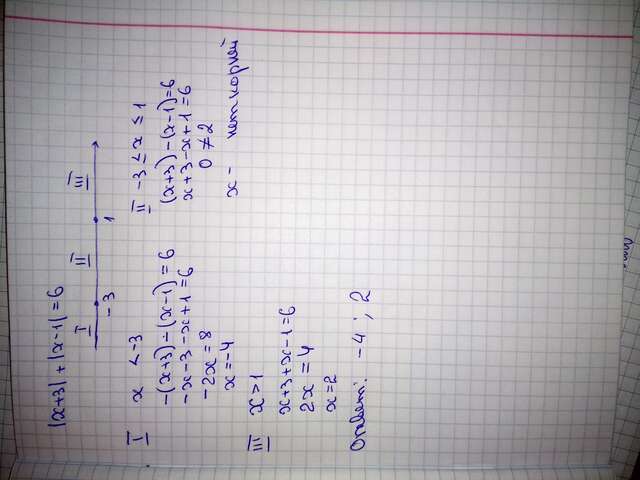 |x+3| + |x-1| = 6
I II III
-3 1
I x < -3
-(x+3) - (x-1) = 6
-x-3 -x+1 = 6
-2x = 8
x = -4
II -3 ≤ x ≤ 1
(x+3) - (x-1) = 6
x+3-x+1 = 6
0 ≠ 2
x - нет корней
III x > 1
x+3+x-1 = 6
2x = 4
x = 2
Ответ: -4 ; 2